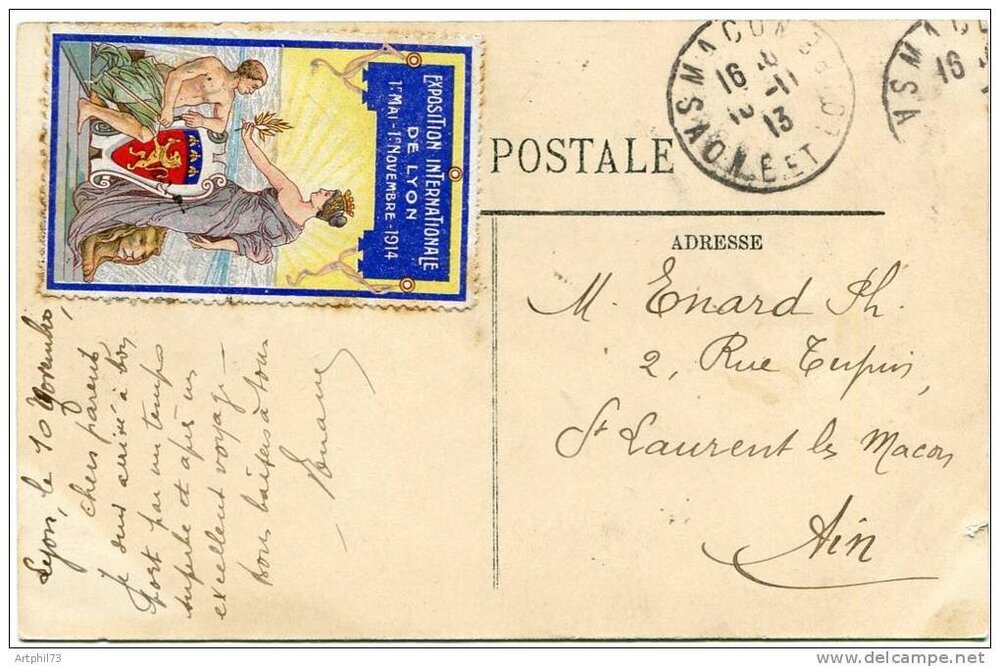 EXPOSITION INTERNATIONALE
DE LYON
1ER MAI - 1ER NOVEMBRE - 1914
POSTALE
MACON
16
10 - 11
13
SAONE ET LOIRE
MAC
16
SA
ADRESSE
M. Enard Ph.
2, Rue Tupin,
St Laurent les Macon
Ain
Lyon, le 10 Novembre,
chers parents
Je suis arrivé à bon
port par un temps
superbe et après un
excellent voyage -
bons baisers à tous
Artphil73
www.delcampe.net